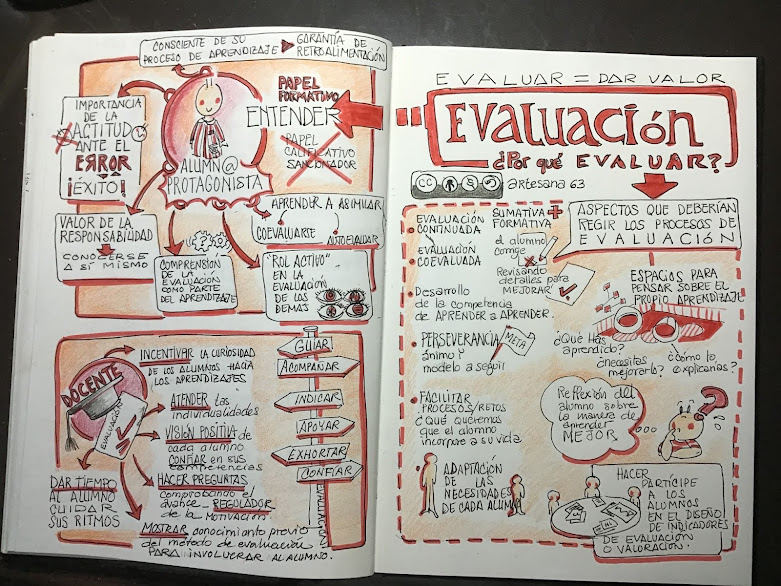 CONSCIENTE DE SU
PROCESO DE APRENDIZAJE
GARANTÍA DE
RETROALIMENTACIÓN
IMPORTANCIA
DE LA
ACTITUD
ANTE EL
ERROR
¡ÉXITO!
ALUMN@
PROTAGONISTA
PAPEL
FORMATIVO
ENTENDER
PAPEL
CALIFICATIVO
SANCIONADOR
VALOR DE LA
RESPONSABILIDAD
CONOCERSE
A SÍ MISMO
COMPRENSIÓN
DE LA
EVALUACIÓN
COMO PARTE
DEL APRENDIZAJE
APRENDER A ASIMILAR
COEVALUARSE
AUTOEVALUAR
"ROL ACTIVO"
EN LA
EVALUACIÓN
DE LOS
DEMÁS
DOCENTE
EVALUACIÓN
INCENTIVAR LA CURIOSIDAD
DE LOS ALUMNOS HACIA
LOS APRENDIZAJES
ATENDER las
individualidades
VISIÓN POSITIVA de
cada alumno
CONFIAR en sus
competencias
HACER PREGUNTAS
comprobando el
avance_REGULADOR
de la MOTIVACIÓN
DAR TIEMPO
AL ALUMNO
CUIDAR
SUS RITMOS
MOSTRAR conocimiento previo
del método de evaluación
PARA INVOLUCRAR AL ALUMNO.
GUIAR
ACOMPAÑAR
INDICAR
APOYAR
EXHORTAR
CONFIAR
EVALUACIÓN
EVALUAR = DAR VALOR
EVALUACIÓN
¿Por qué EVALUAR?
CC
artesana 63
ASPECTOS QUE DEBERÍAN
REGIR LOS PROCESOS DE
EVALUACIÓN
EVALUACIÓN
CONTINUADA
SUMATIVA +
FORMATIVA
EVALUACIÓN
COEVALUADA
el alumno
corrige
Revisando
detalles para
MEJORAR
Desarrollo
de la competencia
de APRENDER A APRENDER.
PERSEVERANCIA
ánimo y
modelo a seguir
META
FACILITAR
PROCESOS/RETOS
¿Qué queremos
que el alumno
incorpore a su vida
ADAPTACIÓN
DE LAS
NECESIDADES
DE CADA ALUMN@
ESPACIOS PARA
PENSAR SOBRE EL
PROPIO APRENDIZAJE
¿Qué has
aprendido?
¿necesitas
mejorarlo?
¿Cómo lo
explicarías?
Reflexión del
alumno sobre
la manera de
entender
MEJOR
?
HACER
PARTÍCIPE
A LOS
ALUMNOS
EN EL DISEÑO
DE INDICADORES
DE EVALUACIÓN
O VALORACIÓN.